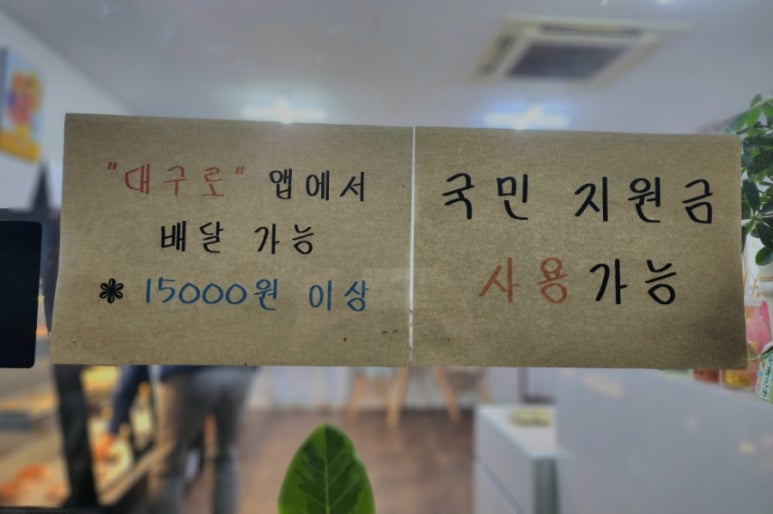 "대구로" 앱에서
배달 가능
❃ 15000원 이상
국민 지원금
사용가능